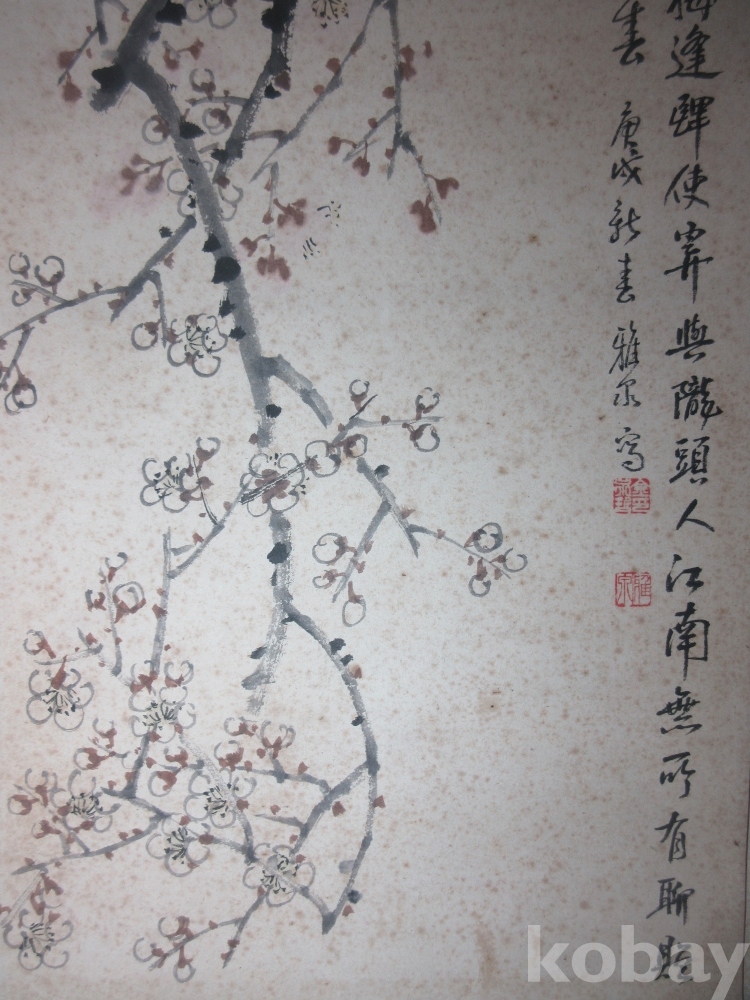 逢驛使寄與隴頭人江南無所有聊贈
春 庚戌新春 雅泉寫
雅泉
kobay